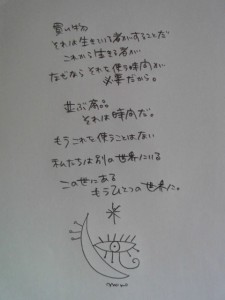 買いもの
それは生きている者がすることだ
これから生きる者が
なぜなら それを使う時間が
必要だから。
並ぶ商品
それは時間だ。
もうこれを使うことはない
私たちは別の世界にいる
この世にある
もうひとつの世界に。